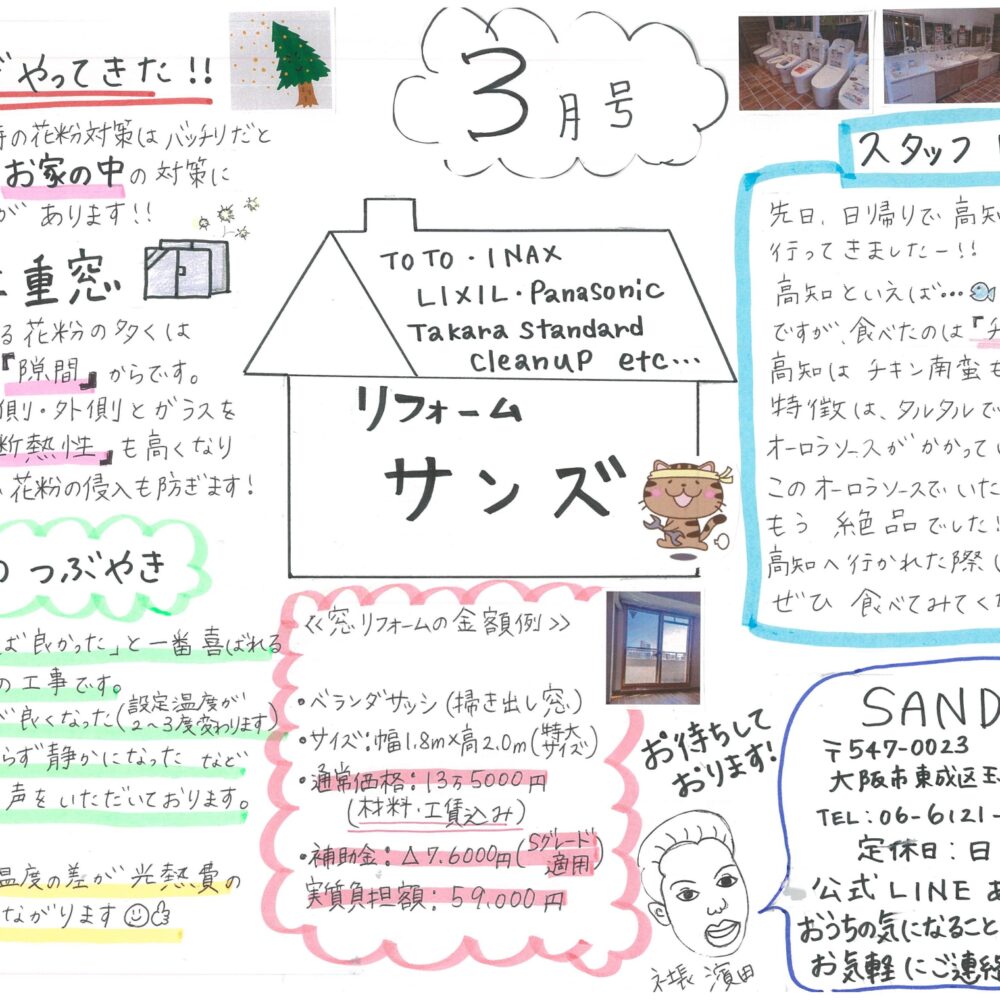 やってきた!!
の花粉対策はバッチリだと
お家の中の対策に
があります!!
重窓
る花粉の多くは
『隙間』からです。
側・外側とガラスを
断熱性』も高くなり
花粉の侵入も防ぎます!
つぶやき
ば良かった」と一番喜ばれる
の工事です。
が良くなった(設定温度が
2~3度変わります)
らず静かになった など
声をいただいております。
温度の差が光熱費の
ながります
3月号
TOTO・INAX
LIXIL・Panasonic
Takara Standard
Cleanup etc…
リフォーム
サンズ
《窓リフォームの金額例》
・ベランダサッシ(掃き出し窓)
・サイズ:幅1.8m×高2.0m(特大サイズ)
・通常価格:13万5000円
(材料・工賃込み)
・補助金:△7.6000円(Sグレード適用)
実質負担額:59.000円
お待ちして
おります!
社長 濱田
スタッフ
先日、日帰りで高知
行ってきましたー!!
高知といえば…
ですが、食べたのは『チ
高知はチキン南蛮も
特徴は、タルタルで
オーロラソースがかかってい
このオーロラソースでいた
もう絶品でした!
高知へ行かれた際し
ぜひ食べてみてくだ
SAND
〒547-0023
大阪市東成区玉
TEL:06-6121-
定休日:日
公式LINEあ
おうちの気になること
お気軽にご連絡